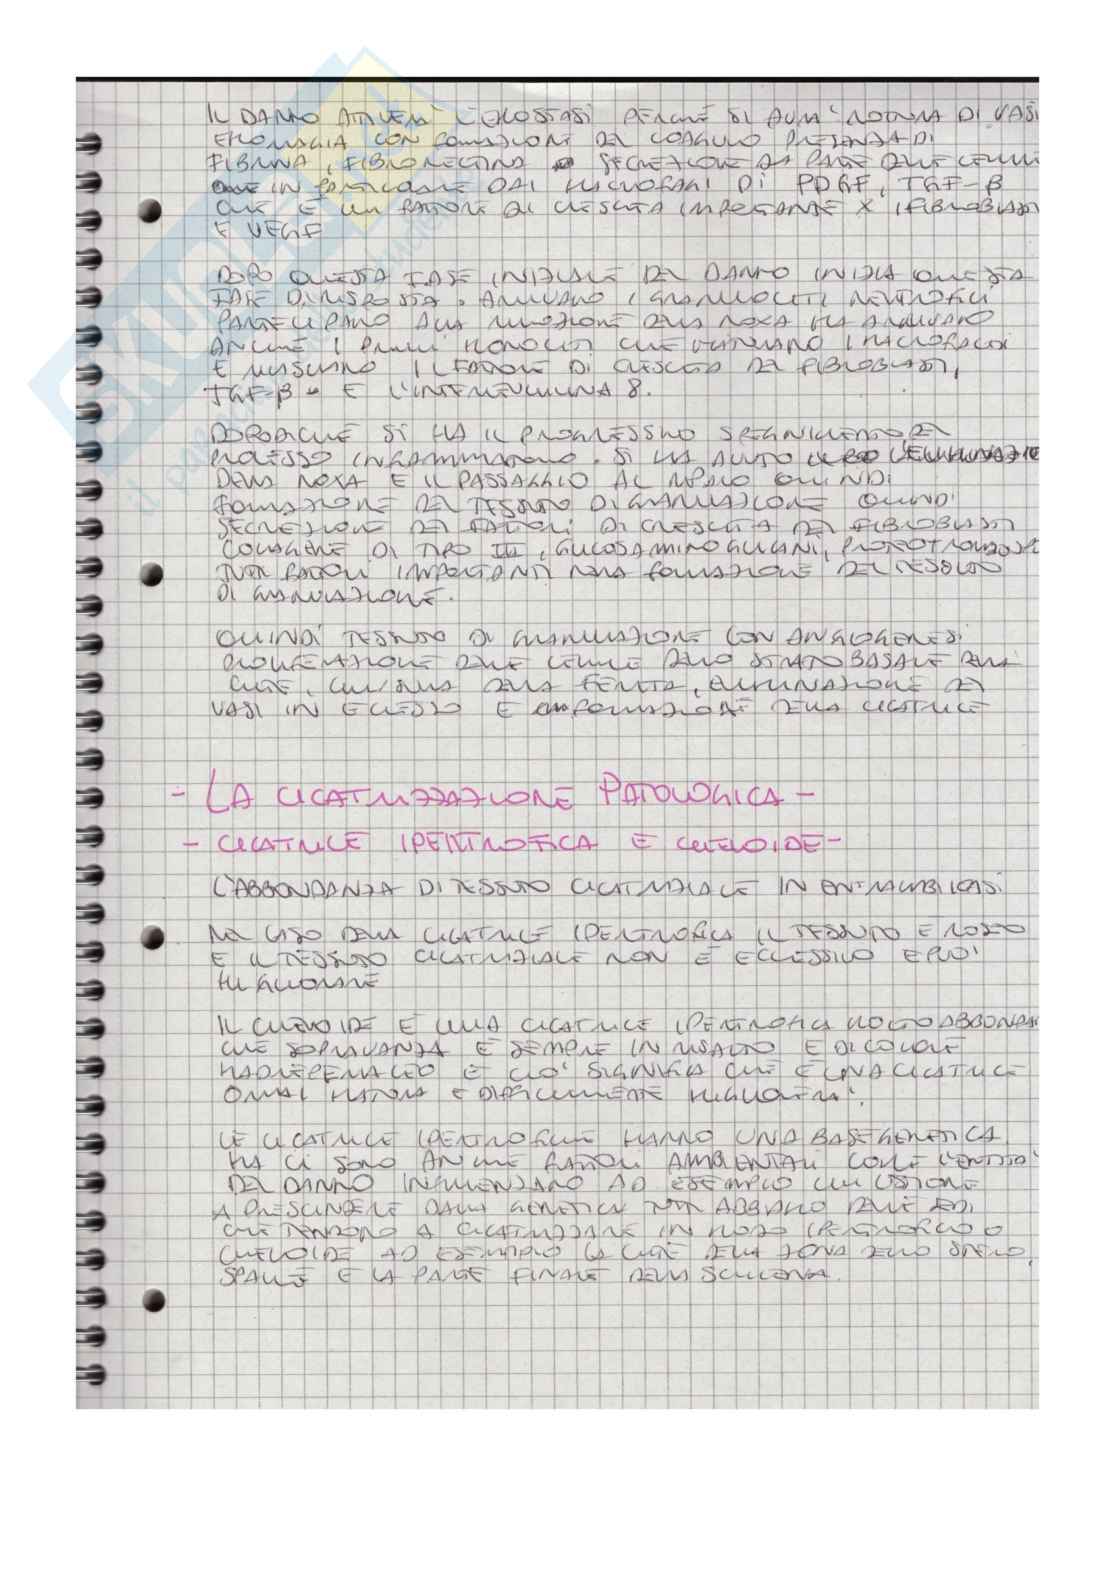 IL DANNO ATTIVERÀ L'EMOSTASI PERCHÉ SI AVRÀ ROTTURA DI VASI
EMORRAGIA CON FORMAZIONE DEL COAGULO PRESENZA DI
FIBRINA, FIBRONECTINA SECREZIONE DA PARTE DELLE CELLULE
IN PARTICOLARE DAI MACROFAGI DI PDGF, TGF-β
CHE È UN FATTORE DI CRESCITA IMPORTANTE X I FIBROBLASTI
E VEGF
DOPO QUESTA FASE INIZIALE DEL DANNO INIZIA QUESTA
FASE DI RISPOSTA. ARRIVANO I GRANULOCITI NEUTROFILI
PARTECIPANO ALLA RIMOZIONE DELLA NOXA MA ARRIVANO
ANCHE I PRIMI MONOCITI CHE DIVENTANO I MACROFAGI
E RILASCIANO IL FATTORE DI CRESCITA DEI FIBROBLASTI,
TGF-β E L'INTERLEUCHINA 8.
DOPODICHÉ SI HA IL PROGRESSIVO SPEGNIMENTO DEL
PROCESSO INFIAMMATORIO. SI HA AVUTO L'ELIMINAZIONE
DELLA NOXA E IL PASSAGGIO AL RIPARO QUINDI
FORMAZIONE DEL TESSUTO DI GRANULAZIONE QUINDI
SECREZIONE DEI FATTORI DI CRESCITA DEI FIBROBLASTI
COLLAGENE DI TIPO III, GLICOSAMINOGLICANI,
TUTTI FATTORI IMPORTANTI NELLA FORMAZIONE DEL TESSUTO
DI GRANULAZIONE.
QUINDI TESSUTO DI GRANULAZIONE CON ANGIOGENESI
PROLIFERAZIONE DELLE CELLULE DELLO STRATO BASALE DELLA
CUTE, CHIUSURA DELLA FERITA, ELIMINAZIONE DEI
VASI IN ECCESSO E FORMAZIONE DELLA CICATRICE
- LA CICATRIZZAZIONE PATOLOGICA -
- CICATRICE IPERTROFICA E CHELOIDE -
L'ABBONDANZA DI TESSUTO CICATRIZIALE IN ENTRAMBI I CASI
NEL CASO DELLA CICATRICE IPERTROFICA IL TESSUTO È ROSEO
E IL TESSUTO CICATRIZIALE NON È ECCESSIVO E PUÒ
MIGLIORARE
IL CHELOIDE È UNA CICATRICE IPERTROFICA MOLTO ABBONDANTE
CHE SOPRAVANZA È SEMPRE IN RISALTO E DI COLORE
MADREPERLACEO E CIÒ SIGNIFICA CHE È UNA CICATRICE
ORMAI MATURA E DIFFICILMENTE MIGLIORERÀ.
LE CICATRICI IPERTROFICHE HANNO UNA BASE GENETICA
MA CI SONO ANCHE FATTORI AMBIENTALI COME L'ENTITÀ
DEL DANNO INFLUENZANO AD ESEMPIO UN'USTIONE
A PRESCINDERE DALLA GENETICA NOI ABBIAMO DELLE SEDI
CHE TENDONO A CICATRIZZARE IN MODO IPERTROFICO O
CHELOIDE AD ESEMPIO LA CUTE DELLA ZONA DELLO STERNO,
SPALLE E LA PARTE FINALE DELLA SCHIENA.